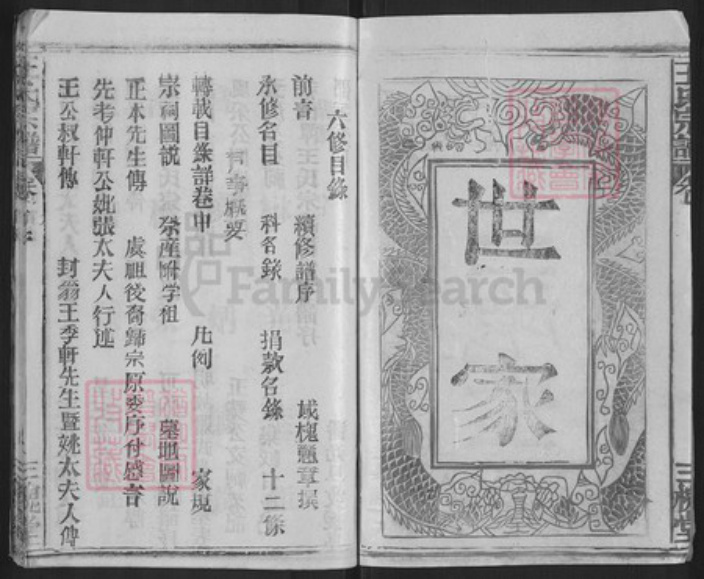 世家
六修目錄
前言 續修譜序 威槐
永修名目 科名錄 捐款名錄 十二條
概要
轉載目錄詳卷中 凡例 家規
宗祠圖說 祭產附学祖 墓地圖說
正本先生傳 虞祖後裔歸宗原委序付感言
先考仲軒公妣張太夫人行述
王公叔軒傳 封翁王季軒先生暨姚太夫人傳
王氏宗譜
三槐堂
FamilySearch